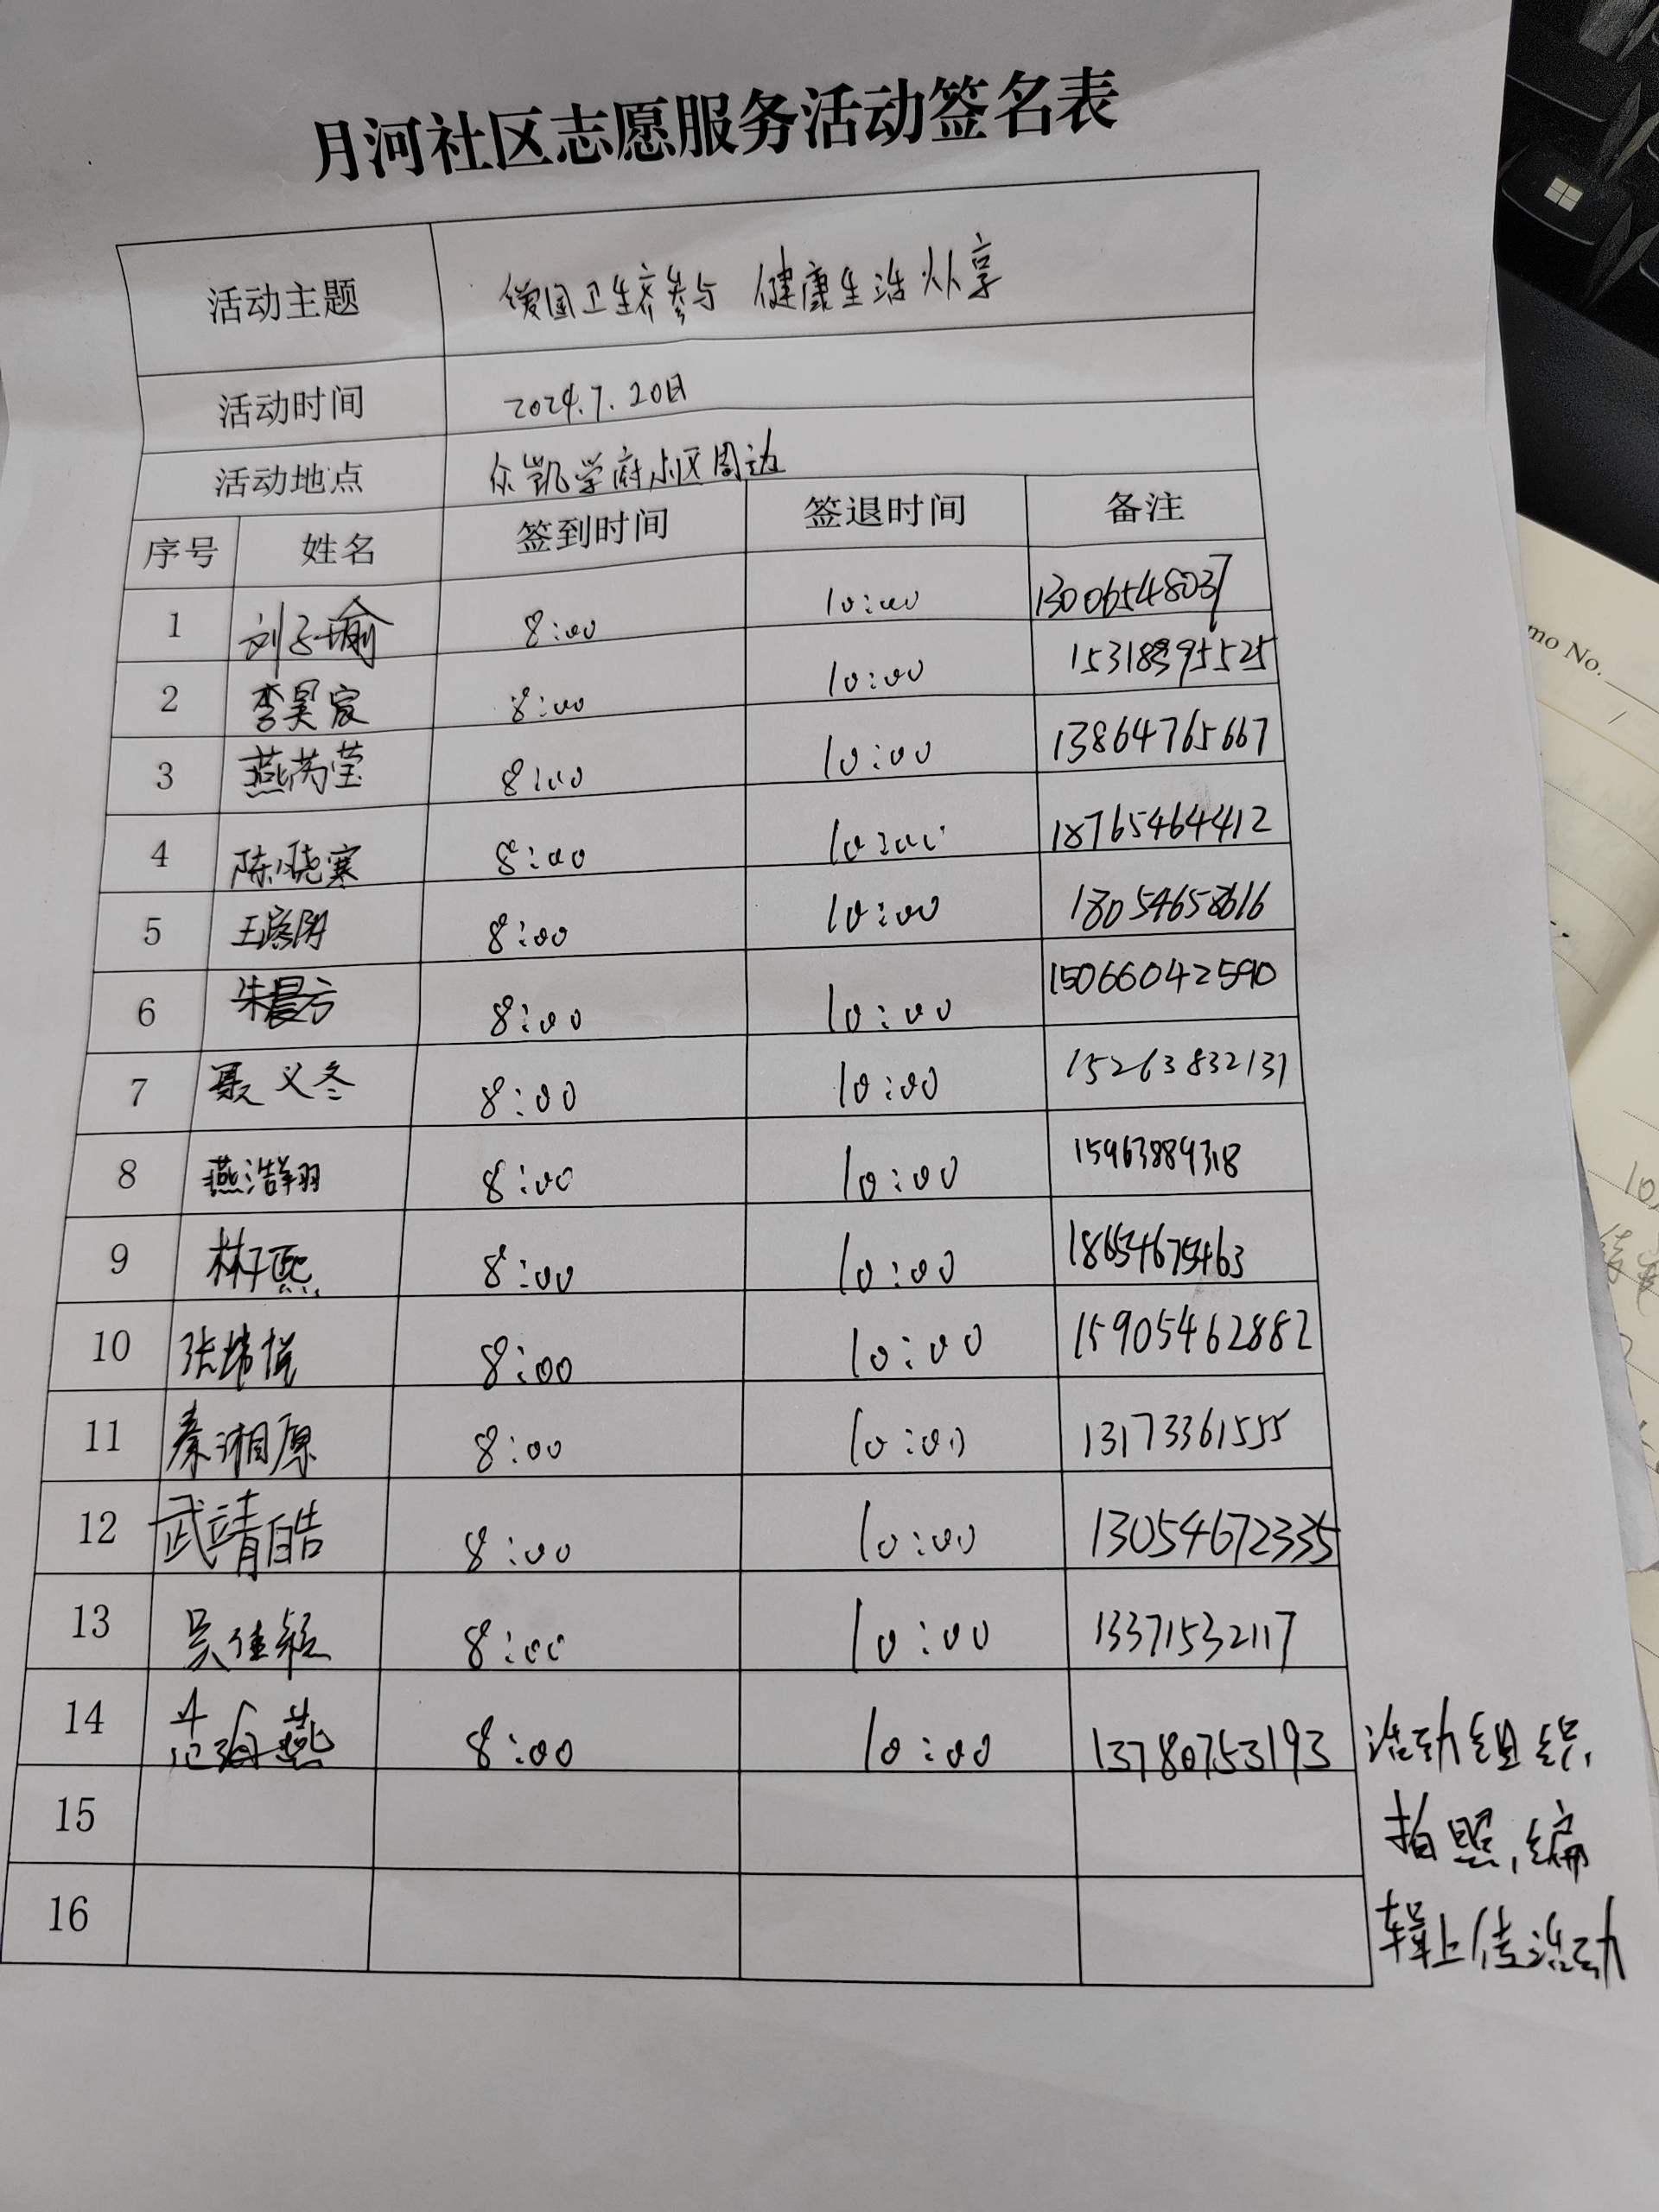 月河社区志愿服务活动签名表
活动主题 爱国卫生齐参与 健康生活众享
活动时间 2024.7.20日
活动地点 众凯学府小区周边
序号 姓名 签到时间 签退时间 备注
1 刘子瑜 8:00 10:00 13006548037
2 李昊宸 8:00 10:00 15318395525
3 燕芮莹 8:00 10:00 13864765667
4 陈晓寒 8:00 10:00 18765464412
5 8:00 10:00 18054658616
6 朱晨方 8:00 10:00 15066042590
7 聂义冬 8:00 10:00 15263832131
8 燕浩翔 8:00 10:00 15963889318
9 林子熙 8:00 10:00 18654675463
10 8:00 10:00 15905462882
11 秦湘原 8:00 10:00 13173361555
12 武靖皓 8:00 10:00 13054672335
13 吴佳颖 8:00 10:00 13371532117
14 范海燕 8:00 10:00 13780753193 活动组织,
15 拍照,编
16 辑上传活动
mo No.